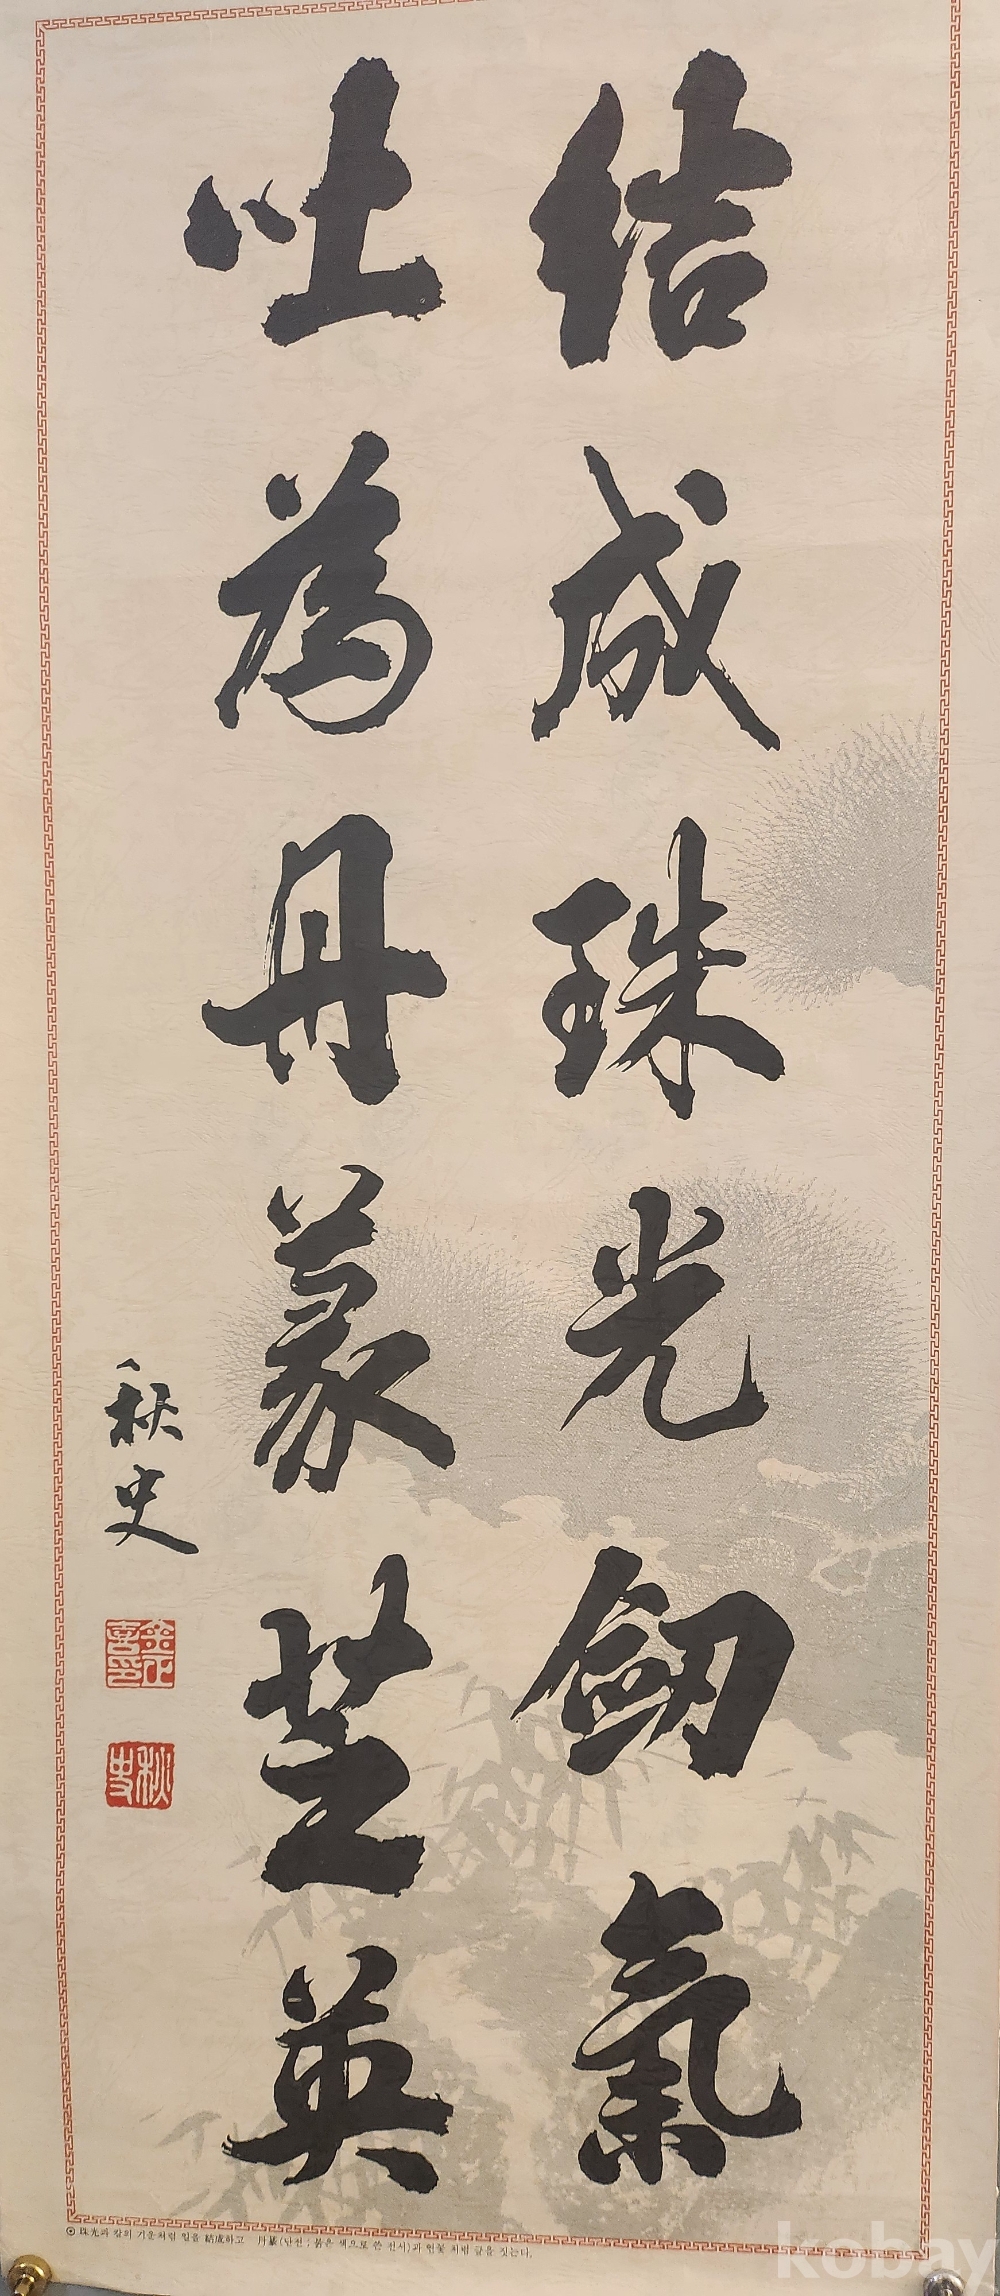 結成珠光劒氣
吐為丹篆芝英
秋史
金正喜印
秋史
⊙ 珠光과 칼의 기운처럼 일을 結成하고 丹篆(단전 ; 붉은 색으로 쓴 전서)과 연꽃처럼 글을 짓는다.
kobay